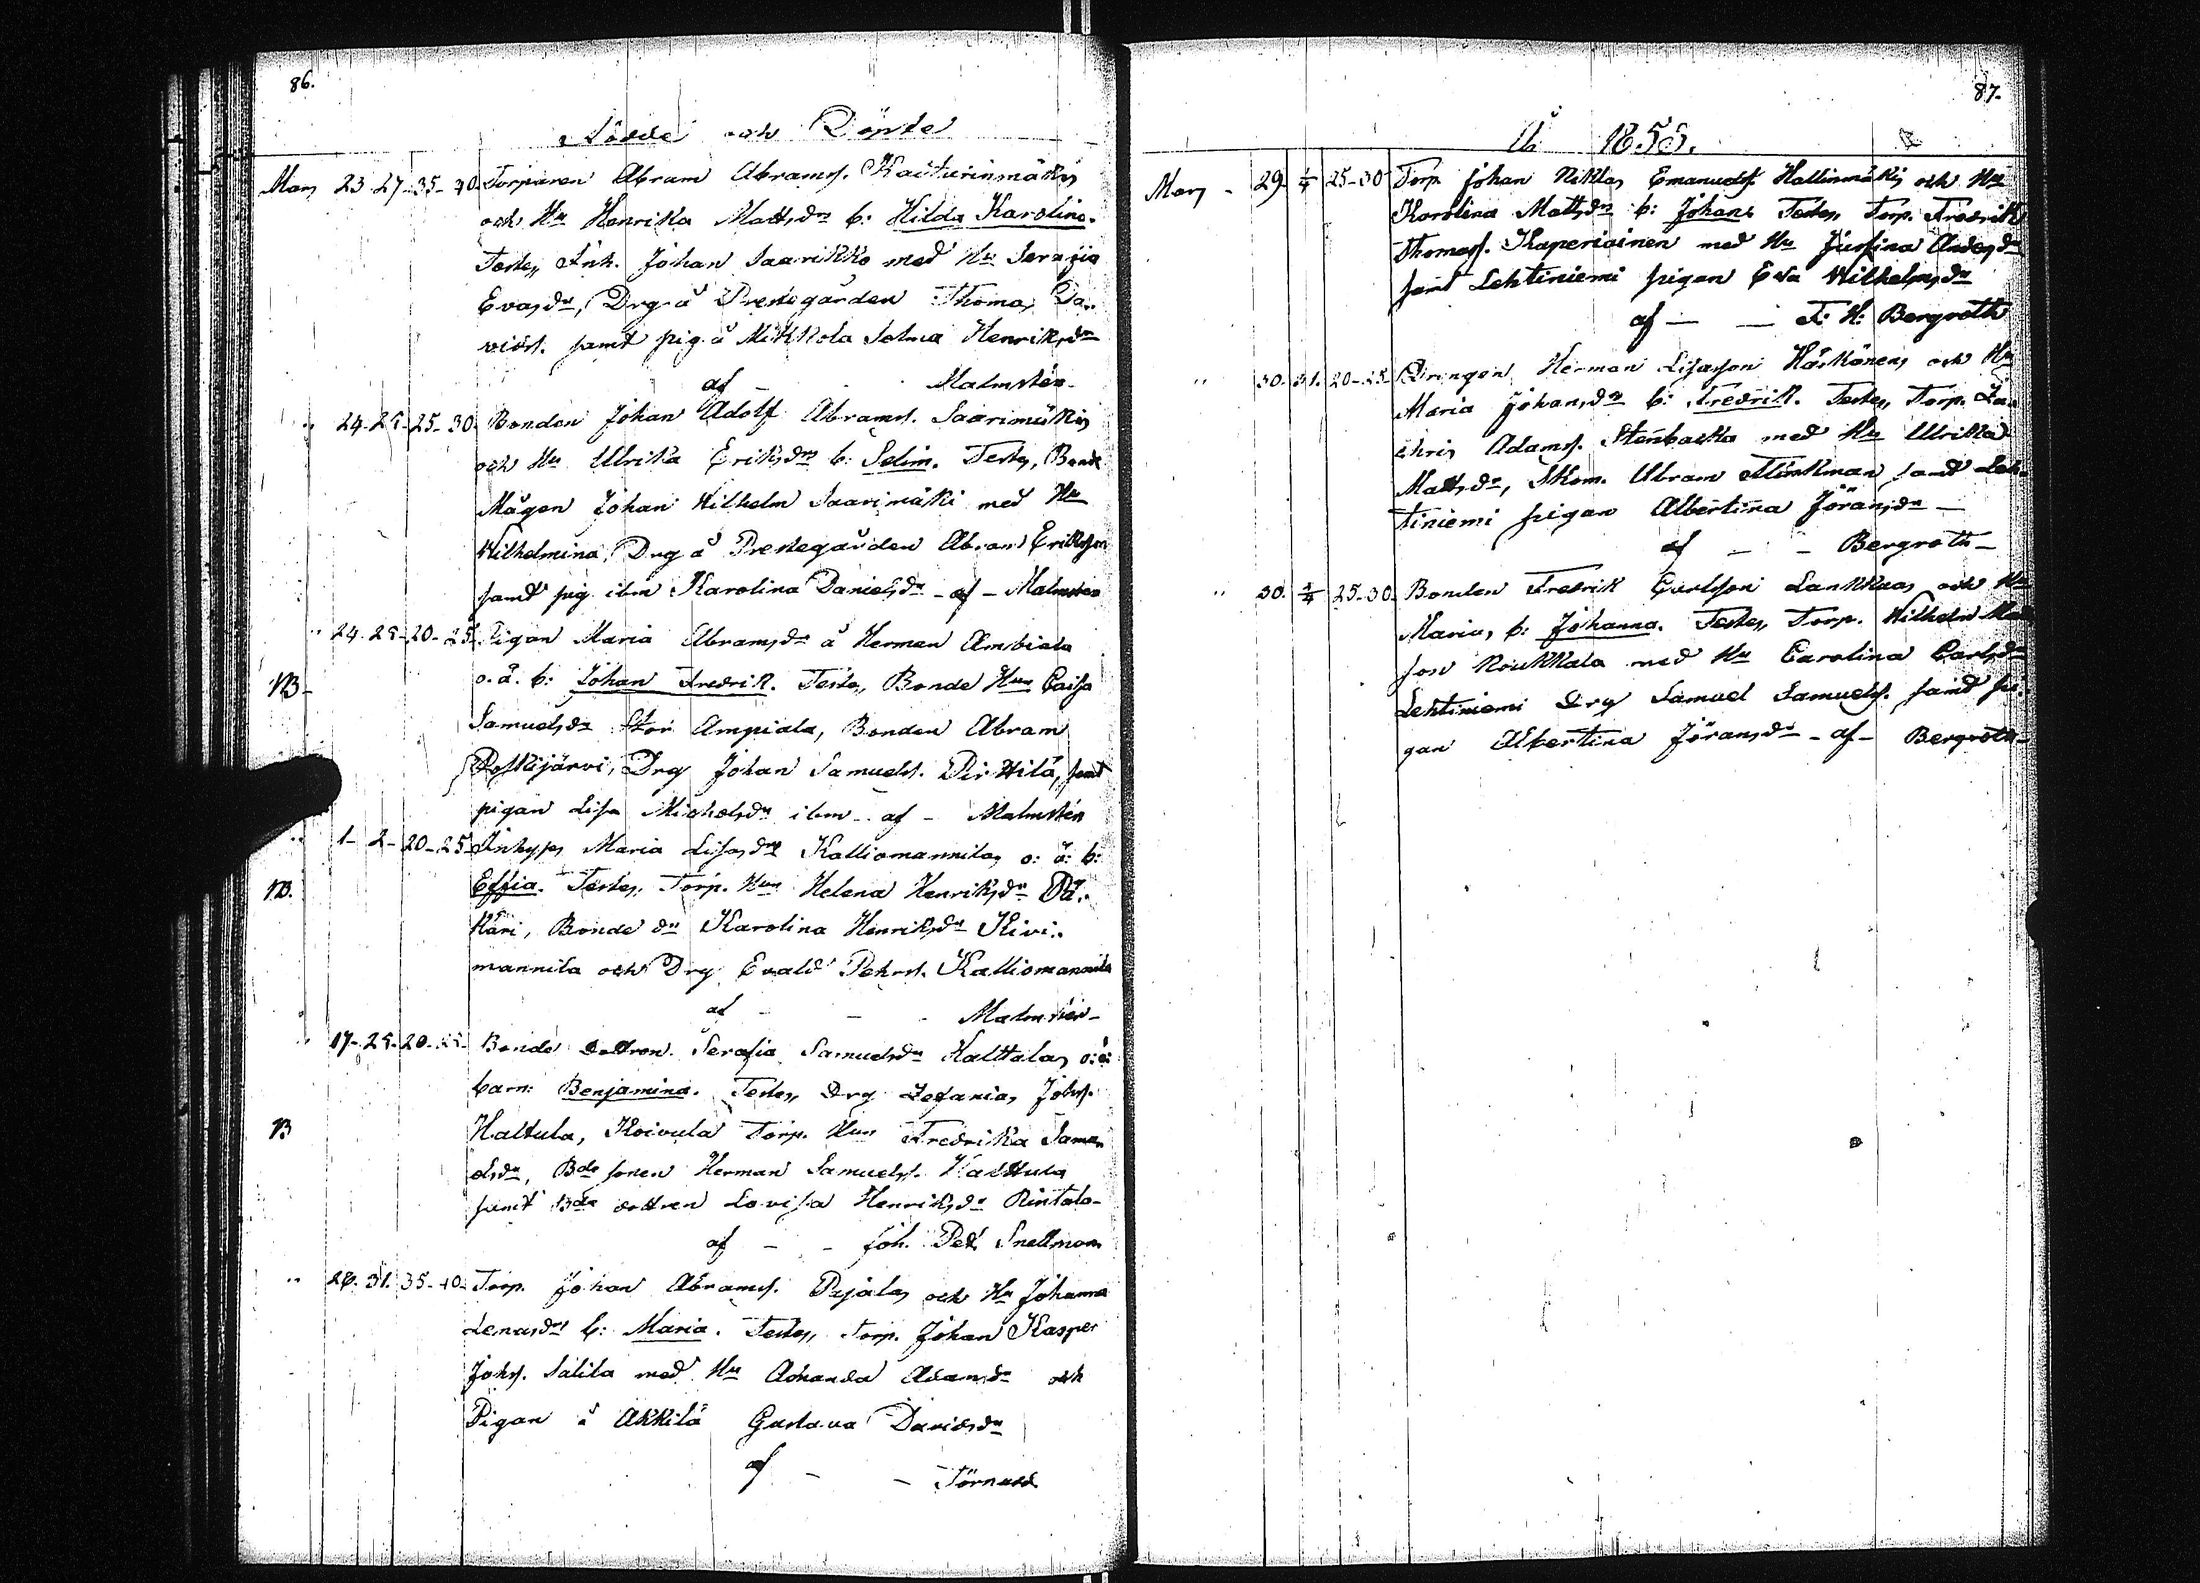 86.
Födde och Döpte
Mars 23 27 35-40. Torparen Abram Abramss. Kaiturinmäkis
och Hu Henrika Mattsdrs b: Hilda Karolina.
Testes, Inh. Johan Saarikko med Hu Serafia
Evasdr, Drg å Prestegården Thomas Da-
vidss. samt pig. å Mikkola Selma Henriksdr
af - - Malmstén
" 24-25-25-30. Bonden Johan Adolf Abramss. Saarimäkis
och Hu Ulrika Eriksdrs b: Selim. Testes, Bonde
Mågen Johan Wilhelm Saarimäki med Hu
Wilhelmina, Drg å Prestegården Abram Eriksson
samt pig. ibm Karolina Danielsdr - af - Malmstén
" 24-25-20-25. Pigan Maria Abramsdr å Herman Ambiala
NB- o.ä. b: Johan Fredrik. Testes, Bonde Hun Caisa
Samuelsdr Stor Ampiala, Bonden Abram
Potkijärvi, Drg Johan Samuelss. Pirttilä, samt
pigan Lisa Michelsdr ibm - af - Malmstén
" 1-2-20-25 Inhyses Maria Lisasdrs Kalliomannilas o: ä: b:
NB. Effia. Testes, Torp. Hun Helena Henriksdr Pä-
käri, Bonde dr Karolina Henriksdr Kivi-
mannila och Drg Evald Pehrss. Kalliomannila
af - - Malmstén-
" 17-25-20-25- Bonde dottren Serafia Samuelsdr Halttulas o: ä:
barn: Benjamina. Testes, Drg Zefanias Johss.
NB Haltula, Koivula Torp. Hun Fredrika Samu-
elsdr, Bde sonen Herman Samuelss. Halttula
samt Bde dottren Lovisa Henriksdr Rintala-
af - - Joh. Pet. Snellman
" 26. 31. 35-40- Torp. Johan Abramss. Pajalas och Hu Johanna
Lenasdrs b: Maria. Testes, Torp. Johan Kasper
Johss. Salila med Hu Amanda Adamsdr och
Pigan å Akkila Gustava Davidsdr
af - - Törnudd
87.
År 1855.
Mars - 29. 1/4 25-30 Torp. Johan Niklas Emanuelss. Hallinmäkis och Hu
Karolina Mattsdrs b: Johans Testes, Torp. Fredrik
Thomass. Kaperiainen med Hu Jusfina Andersdr
samt Lehtiniemi pigan Eva Wilhelmsdr
af - - F. H. Bergroth
" 30. 31. 20-25- Drengen Herman Lisasson Häskänens och Hu
Maria Johansdrs b: Fredrik. Testes, Torp. Za-
chris Adamss. Stenbacka med Hu Ulrika
Mattsdr, Skom. Abram Flinkman samt Leh-
tiniemi pigan Albertina Göransdr -
af - - Bergroth-
" 30. 1/4 25-30. Bonden Fredrik Carlsson Lankkuas och Hu
Marias, b: Johanna. Testes, Torp. Wilhelm
son Noukkala med Hu Carolina Carlsdr
Lehtiniemi Drg Samuel Samuelss. samt pi-
gan Albertina Göransdr - af - Bergroth-